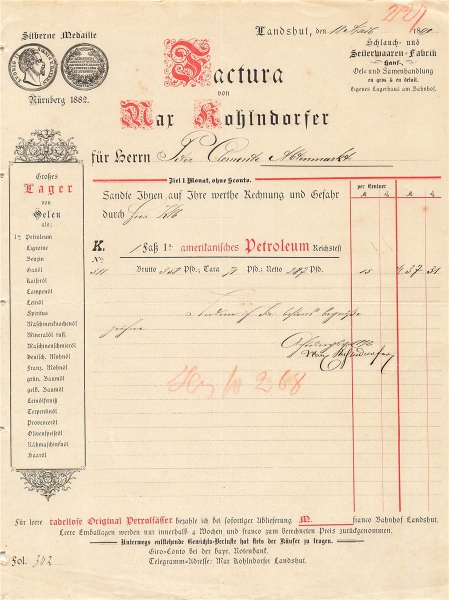 Silberne Medaille
Nürnberg 1882.
Landshut, den
Schlauch- und
Seilerwaaren-Fabrik
Hanf-,
Oel- und Samenhandlung
en gros & en detail.
Eigenes Lagerhaus am Bahnhof.
Factura
von
Max Kohlndorfer
für Herrn
Ziel 1 Monat, ohne Sconto.
Sandte Ihnen auf Ihre werthe Rechnung und Gefahr
durch
per Centner
K. 1 Faß Ia amerikanisches Petroleum Reichstest
No.
Brutto Pfd.; Tara Pfd.; Netto Pfd. 15 37 31
Großes
Lager
von
Oelen
als:
Ia Petroleum
Ligroine
Benzin
Gasöl
Kaiseröl
Lampenöl
Leinöl
Spiritus
Maschinenknochenöl
Mineralöl russ.
Maschinenschmieröl
Deutsch. Mohnöl
Franz. Mohnöl
grün. Baumöl
gelb. Baumöl
Leinölfirniß
Terpentinöl
Provenceröl
Olivenspeiseöl
Nähmaschinenöl
Haaröl
Max Kohlndorfer
Für leere tadellose Original Petrolfässer bezahle ich bei sofortiger Ablieferung M. franco Bahnhof Landshut.
Leere Emballagen werden nur innerhalb 4 Wochen und franco zum berechneten Preis zurückgenommen.
Unterwegs entstehende Gewichts-Verluste hat stets der Käufer zu tragen.
Giro-Conto bei der bayr. Notenbank.
Fol. 302
Telegramm-Adresse: Max Kohlndorfer Landshut.